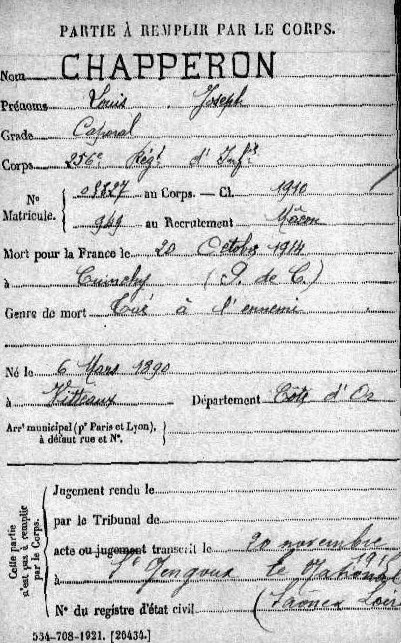 PARTIE À REMPLIR PAR LE CORPS.
Nom CHAPPERON
Prénoms Louis Joseph
Grade Caporal
Corps 256e Régt d'Infie
No Matricule. 03827 au Corps. — Cl. 1910
949 au Recrutement Mâcon
Mort pour la France le 20 Octobre 1914
à Cuinchy (P. de C.)
Genre de mort Tué à l'ennemi
Né le 6 Mars 1890
à Vitteaux Département Côte d'Or
Arrt municipal (pr Paris et Lyon),
à défaut rue et No.
Cette partie n'est pas à remplir par le Corps.
Jugement rendu le
par le Tribunal de
acte ou jugement transcrit le 20 novembre
à St Gengoux le
No du registre d'état civil (Saône & Loire
534-708-1921. [26434.]